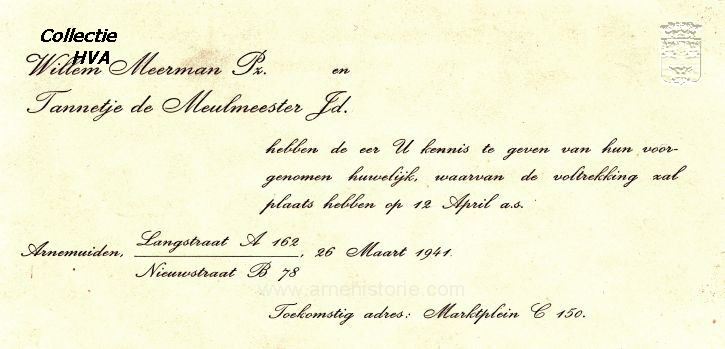 Collectie
HVA
Willem Meerman Pz. en
Tannetje de Meulmeester Jd.
hebben de eer U kennis te geven van hun voor-
genomen huwelijk, waarvan de voltrekking zal
plaats hebben op 12 April a.s.
Arnemuiden, Langstraat A 162
Nieuwstraat B 78 , 26 Maart 1941.
www.arnehistorie.com
Toekomstig adres: Marktplein C 150.